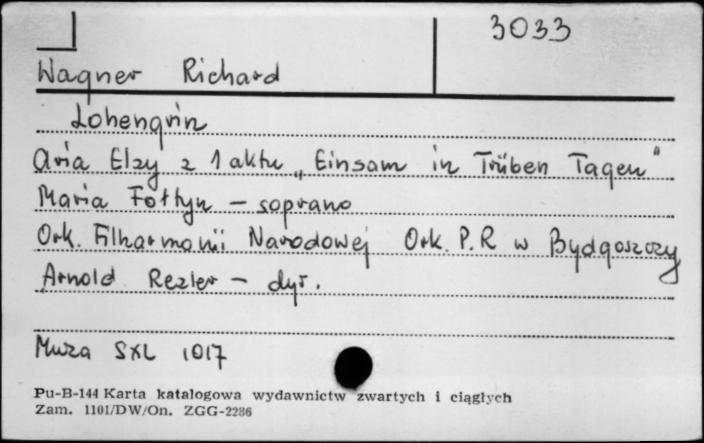 3033
Wagner Richard
Lohengrin
Aria Elzy z 1 aktu „Einsam in Trüben Tagen"
Maria Fołtyn – soprano
Ork. Filharmonii Narodowej Ork. P.R w Bydgoszczy
Arnold Rezler – dyr.
Muza SXL 1017
Pu-B-144 Karta katalogowa wydawnictw zwartych i ciągłych
Zam. 1101/DW/On. ZGG-2286